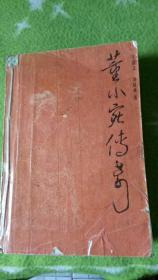 董小宛传奇